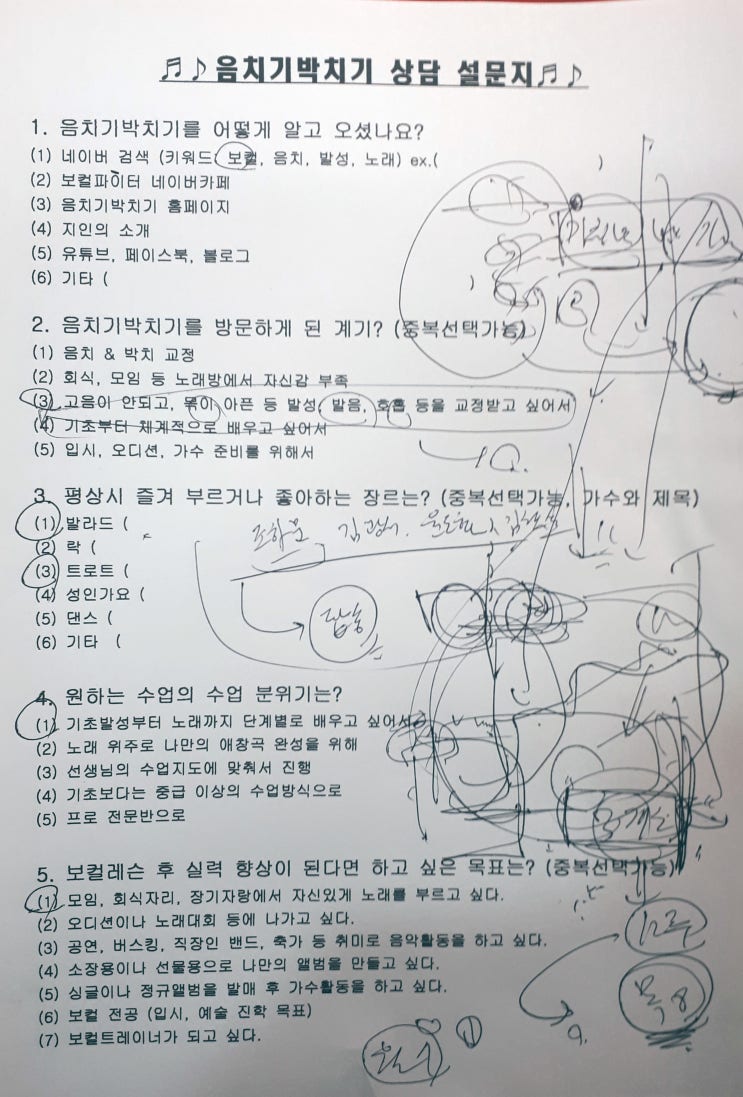 ♬♪음치기박치기 상담 설문지♬♪
1. 음치기박치기를 어떻게 알고 오셨나요?
(1) 네이버 검색 (키워드: 보컬, 음치, 발성, 노래) ex.( )
(2) 보컬파이터 네이버카페
(3) 음치기박치기 홈페이지
(4) 지인의 소개
(5) 유튜브, 페이스북, 블로그
(6) 기타 ( )
2. 음치기박치기를 방문하게 된 계기? (중복선택가능)
(1) 음치 & 박치 교정
(2) 회식, 모임 등 노래방에서 자신감 부족
(3) 고음이 안되고, 목이 아픈 등 발성, 발음, 호흡 등을 교정받고 싶어서
(4) 기초부터 체계적으로 배우고 싶어서
(5) 입시, 오디션, 가수 준비를 위해서
3. 평상시 즐겨 부르거나 좋아하는 장르는? (중복선택가능, 가수와 제목)
(1) 발라드 (
(2) 락 (
(3) 트로트 (
(4) 성인가요 (
(5) 댄스 (
(6) 기타 (
4. 원하는 수업의 수업 분위기는?
(1) 기초발성부터 노래까지 단계별로 배우고 싶어서
(2) 노래 위주로 나만의 애창곡 완성을 위해
(3) 선생님의 수업지도에 맞춰서 진행
(4) 기초보다는 중급 이상의 수업방식으로
(5) 프로 전문반으로
5. 보컬레슨 후 실력 향상이 된다면 하고 싶은 목표는? (중복선택가능)
(1) 모임, 회식자리, 장기자랑에서 자신있게 노래를 부르고 싶다.
(2) 오디션이나 노래대회 등에 나가고 싶다.
(3) 공연, 버스킹, 직장인 밴드, 축가 등 취미로 음악활동을 하고 싶다.
(4) 소장용이나 선물용으로 나만의 앨범을 만들고 싶다.
(5) 싱글이나 정규앨범을 발매 후 가수활동을 하고 싶다.
(6) 보컬 전공 (입시, 예술 진학 목표)
(7) 보컬트레이너가 되고 싶다.